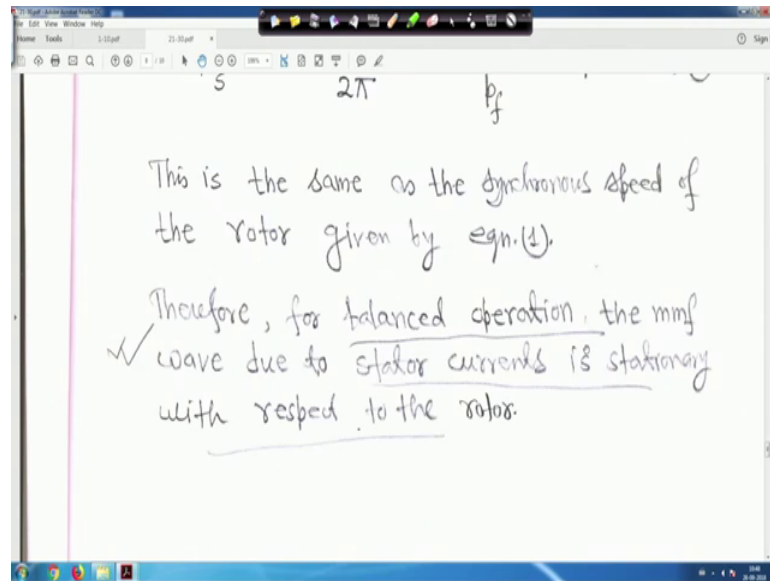 21-30.pdf - Adobe Acrobat Reader DC
File Edit View Window Help
Home Tools 1-10.pdf 21-30.pdf × Sign
s 2π p_f
This is the same as the synchronous speed of
the rotor given by eqn.(1).
Therefore, for balanced operation, the mmf
wave due to stator currents is stationary
with respect to the rotor.